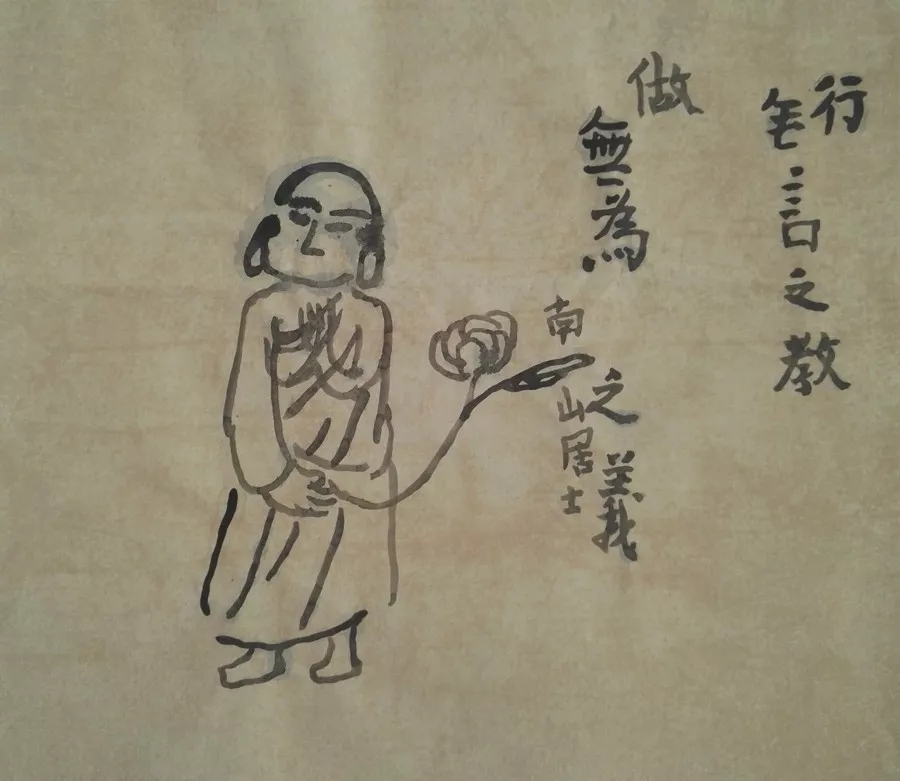 行言之教
做無為之義
南山居士